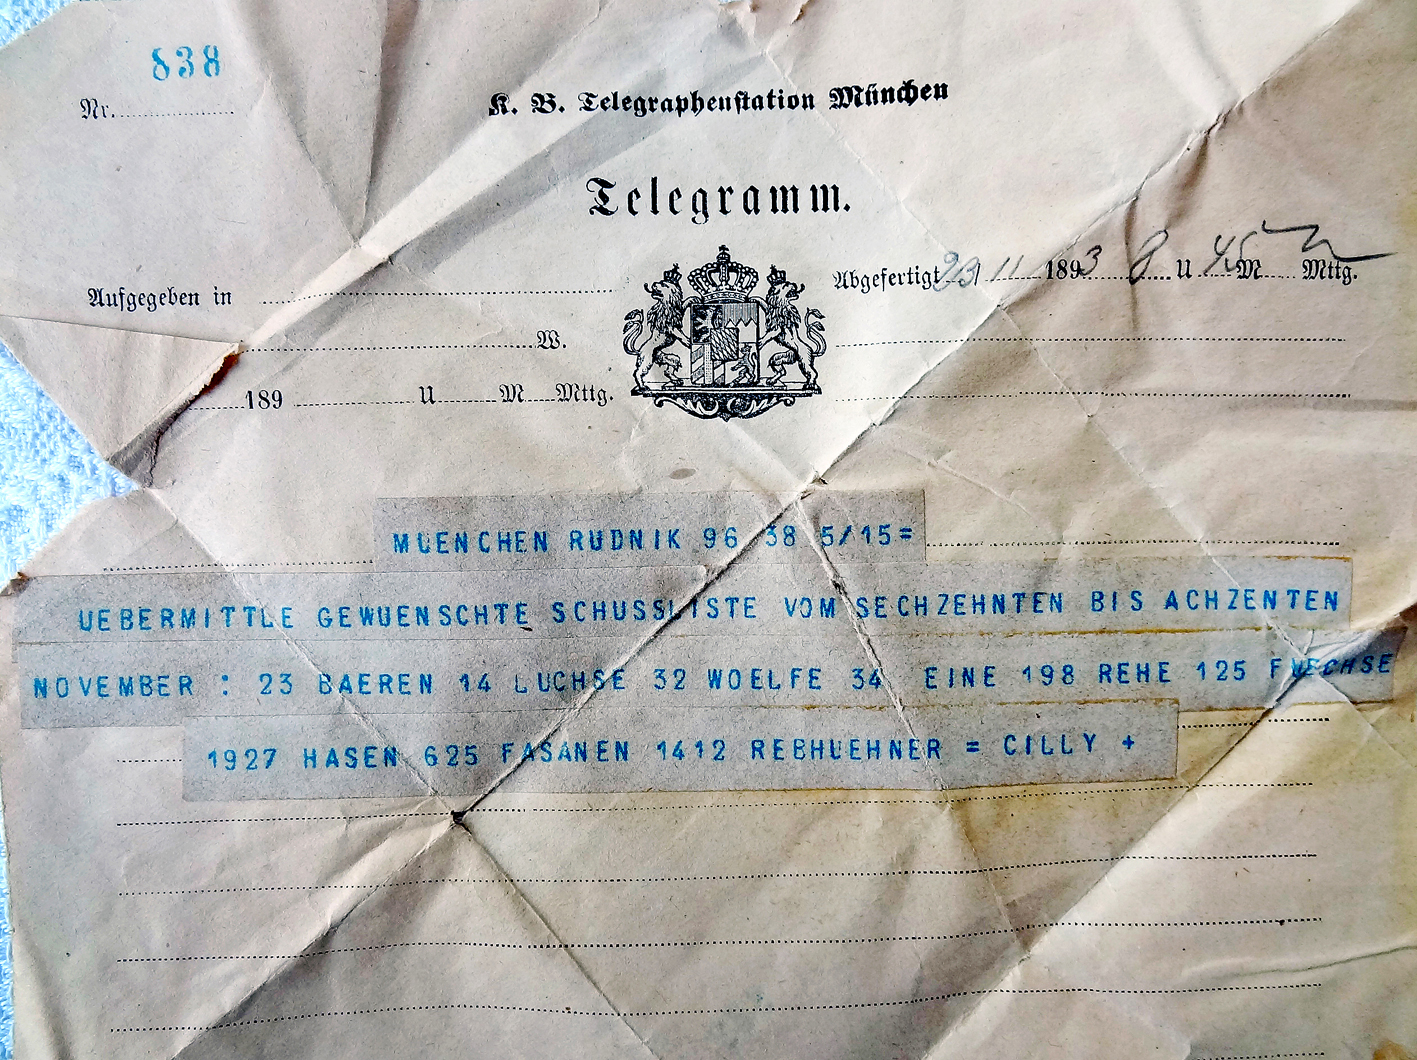 838
Nr.
K. B. Telegraphenstation München
Telegramm.
Abgefertigt 23 11 1893 8 U 45 M Mttg.
Aufgegeben in
W.
189 U M Mttg.
MUENCHEN RUDNIK 96 38 5/15=
UEBERMITTLE GEWUENSCHTE SCHUSSLISTE VOM SECHZEHNTEN BIS ACHZENTEN
NOVEMBER : 23 BAEREN 14 LUCHSE 32 WOELFE 34 EINE 198 REHE 125 FUECHSE
1927 HASEN 625 FASANEN 1412 REBHUEHNER = CILLY +